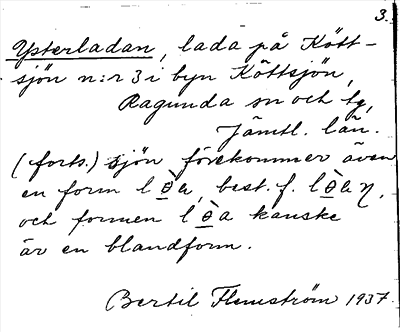 3.
Ysterladan, lada på Kött-
sjön n:r 3 i byn Köttsjön,
Ragunda sn och tg,
Jämtl. län.
(forts.) sjön förekommer även
en form l ṑ̱a, best. f. l ṑ̱a ŋ,
och formen l ṑ̱ a kanske
är en blandform.
Bertil Flemström 1937.